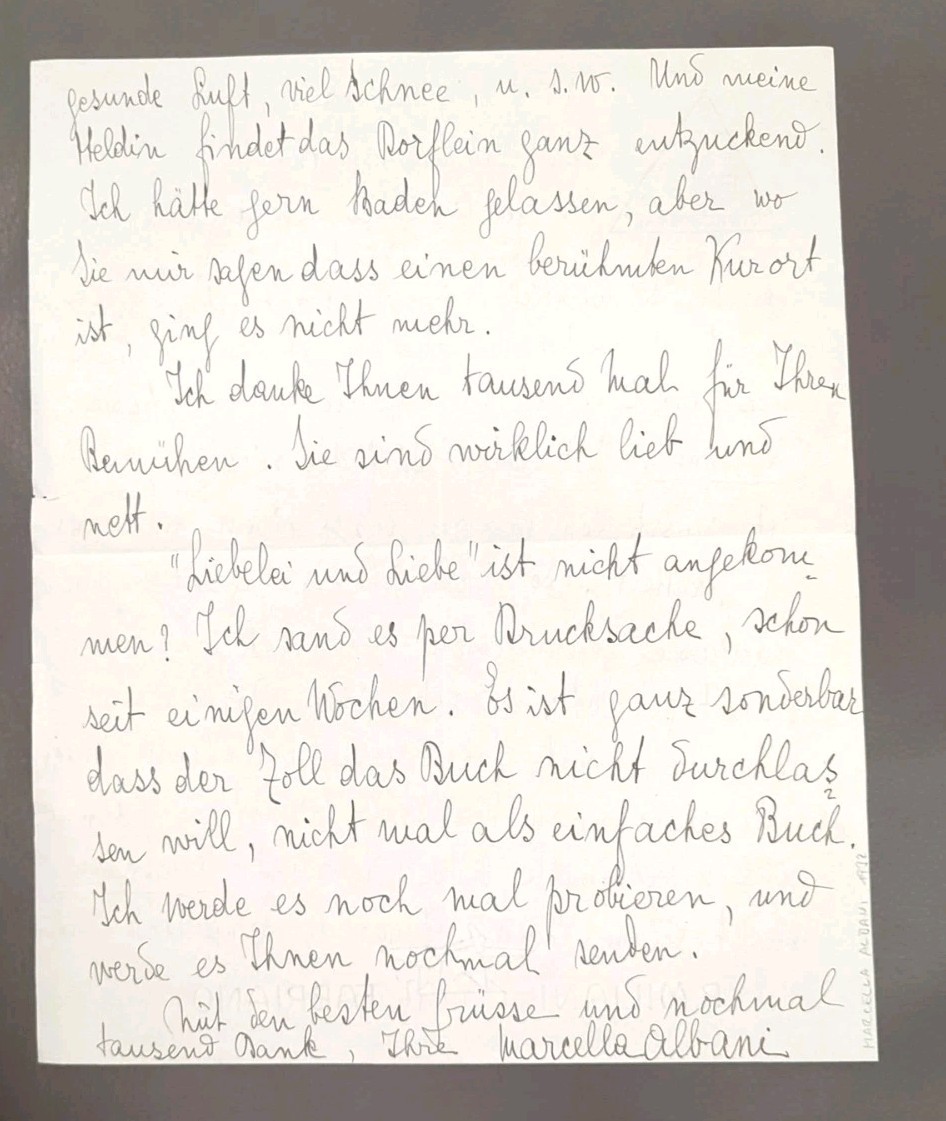 gesunde Luft, viel Schnee, u. s. w. Und meine
Heldin findet das Dorflein ganz entzuckend.
Ich hätte gern Baden gelassen, aber wo
Sie mir sagen dass einen berühmten Kurort
ist, ging es nicht mehr.
Ich danke Ihnen tausend mal für Ihren
Bemühen. Sie sind wirklich lieb und
nett.
"Liebelei und Liebe" ist nicht angekom-
men? Ich sand es per Drucksache, schon
seit einigen Wochen. Es ist ganz sonderbar
dass der Zoll das Buch nicht durchlas-
sen will, nicht mal als einfaches Buch.
Ich werde es noch mal probieren, und
werde es Ihnen nochmal senden.
Mit den besten Grüsse und nochmal
tausend Dank, Ihre Marcella Albani
MARCELLA ALBANI